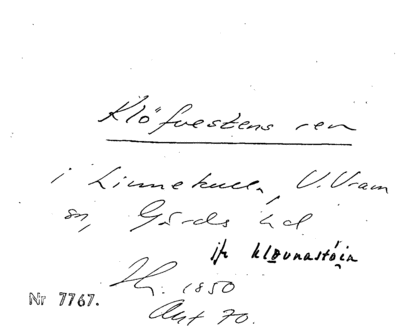 Klöfvestens ren
i Linnekulla, V. Vram
sn, Gärds hd
jfr kløvnastáin
1850
Ant 70.
Nr 7767.